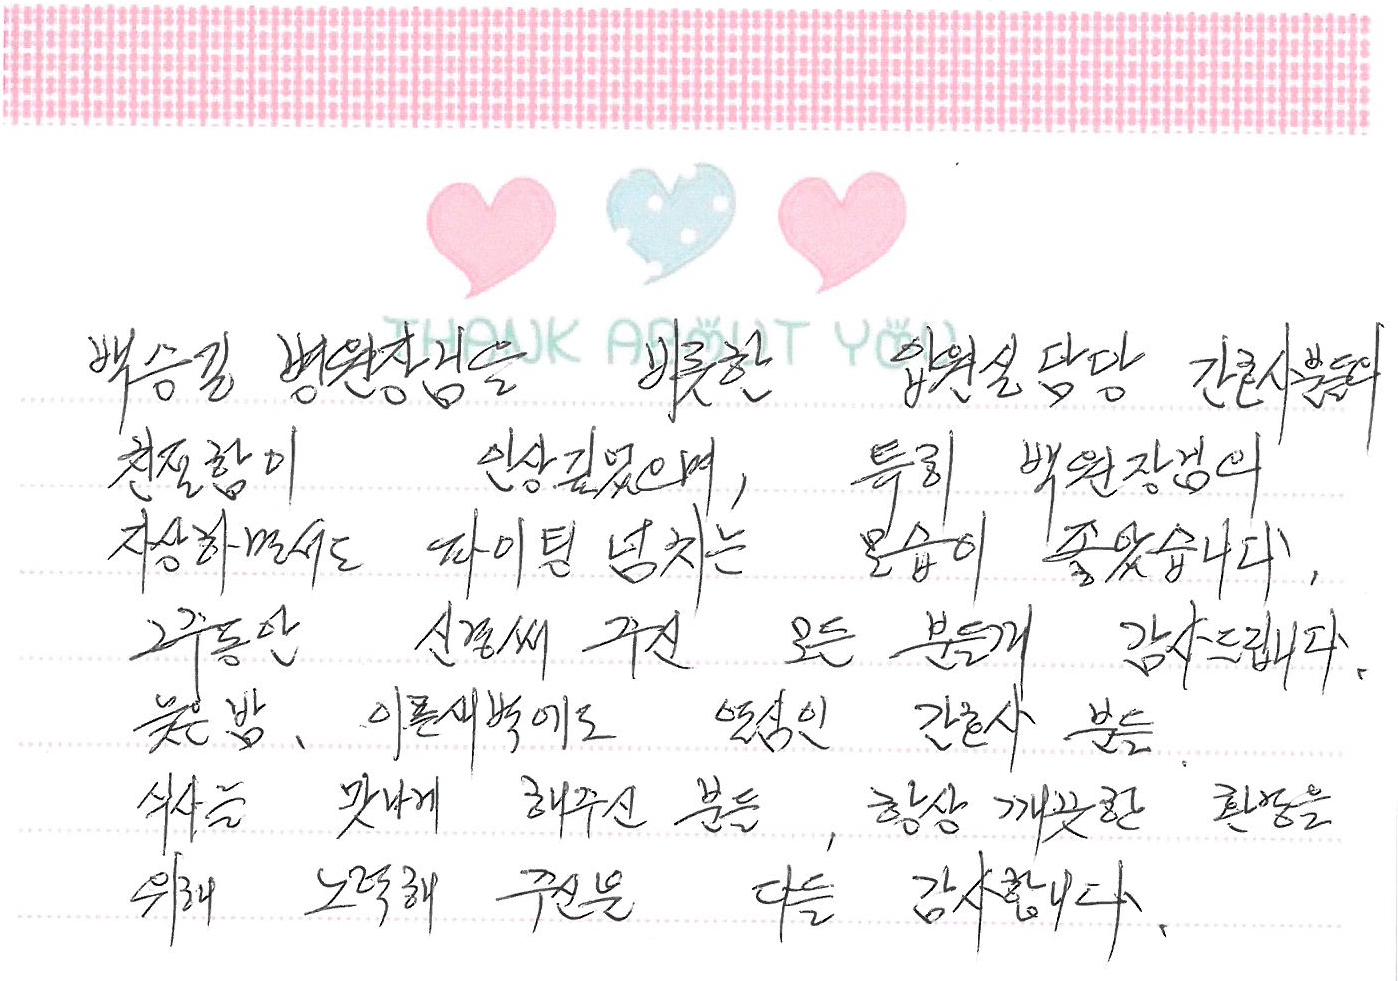 THANK ABOUT YOU
백승길 병원장님을 비롯한 입원실 담당 간호사분들의
친절함이 인상깊었으며, 특히 백원장님의
자상하면서도 파이팅 넘치는 모습이 좋았습니다.
2주동안 신경써 주신 모든 분들께 감사드립니다.
늦은밤, 이른새벽에도 열심인 간호사 분들.
식사를 맛나게 해주신 분들, 항상 깨끗한 환경을
위해 노력해 주신분 다들 감사합니다.